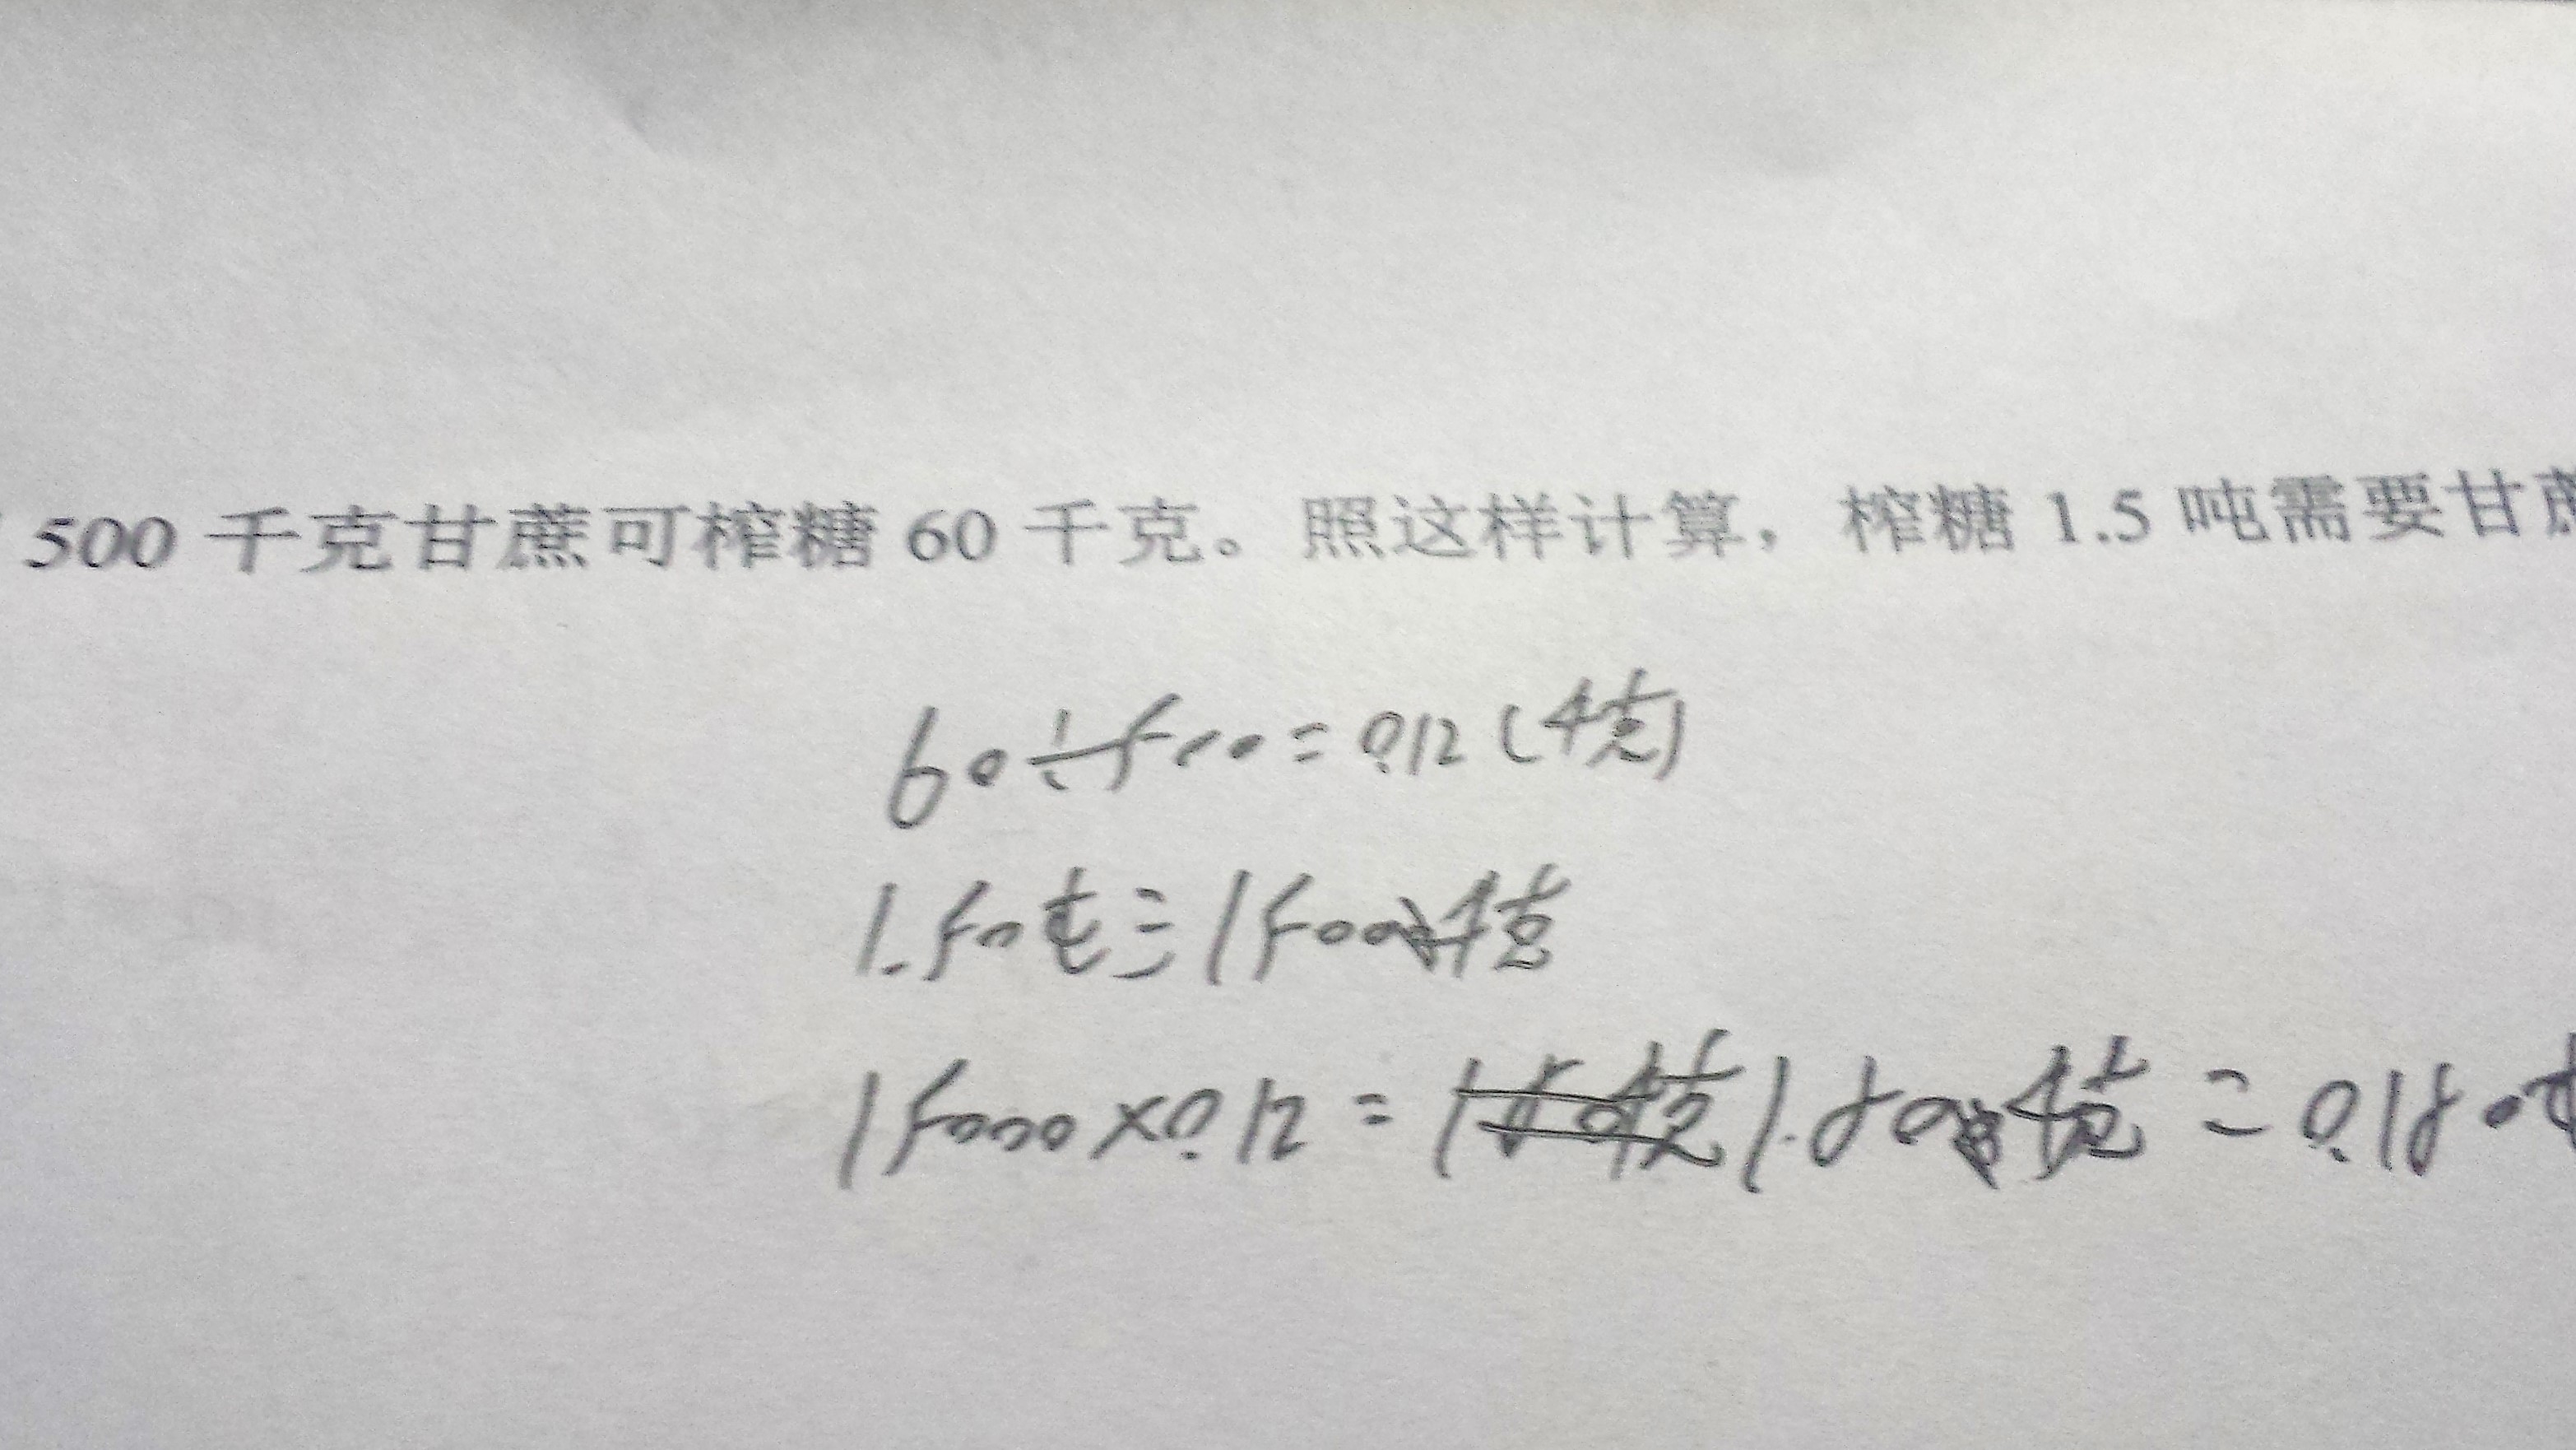 500 千克甘蔗可榨糖 60 千克。照这样计算，榨糖 1.5 吨需要甘蔗
60÷500=0.12(千克)
1.50吨=1500千克
15000×0.12= 1.80千克=0.180